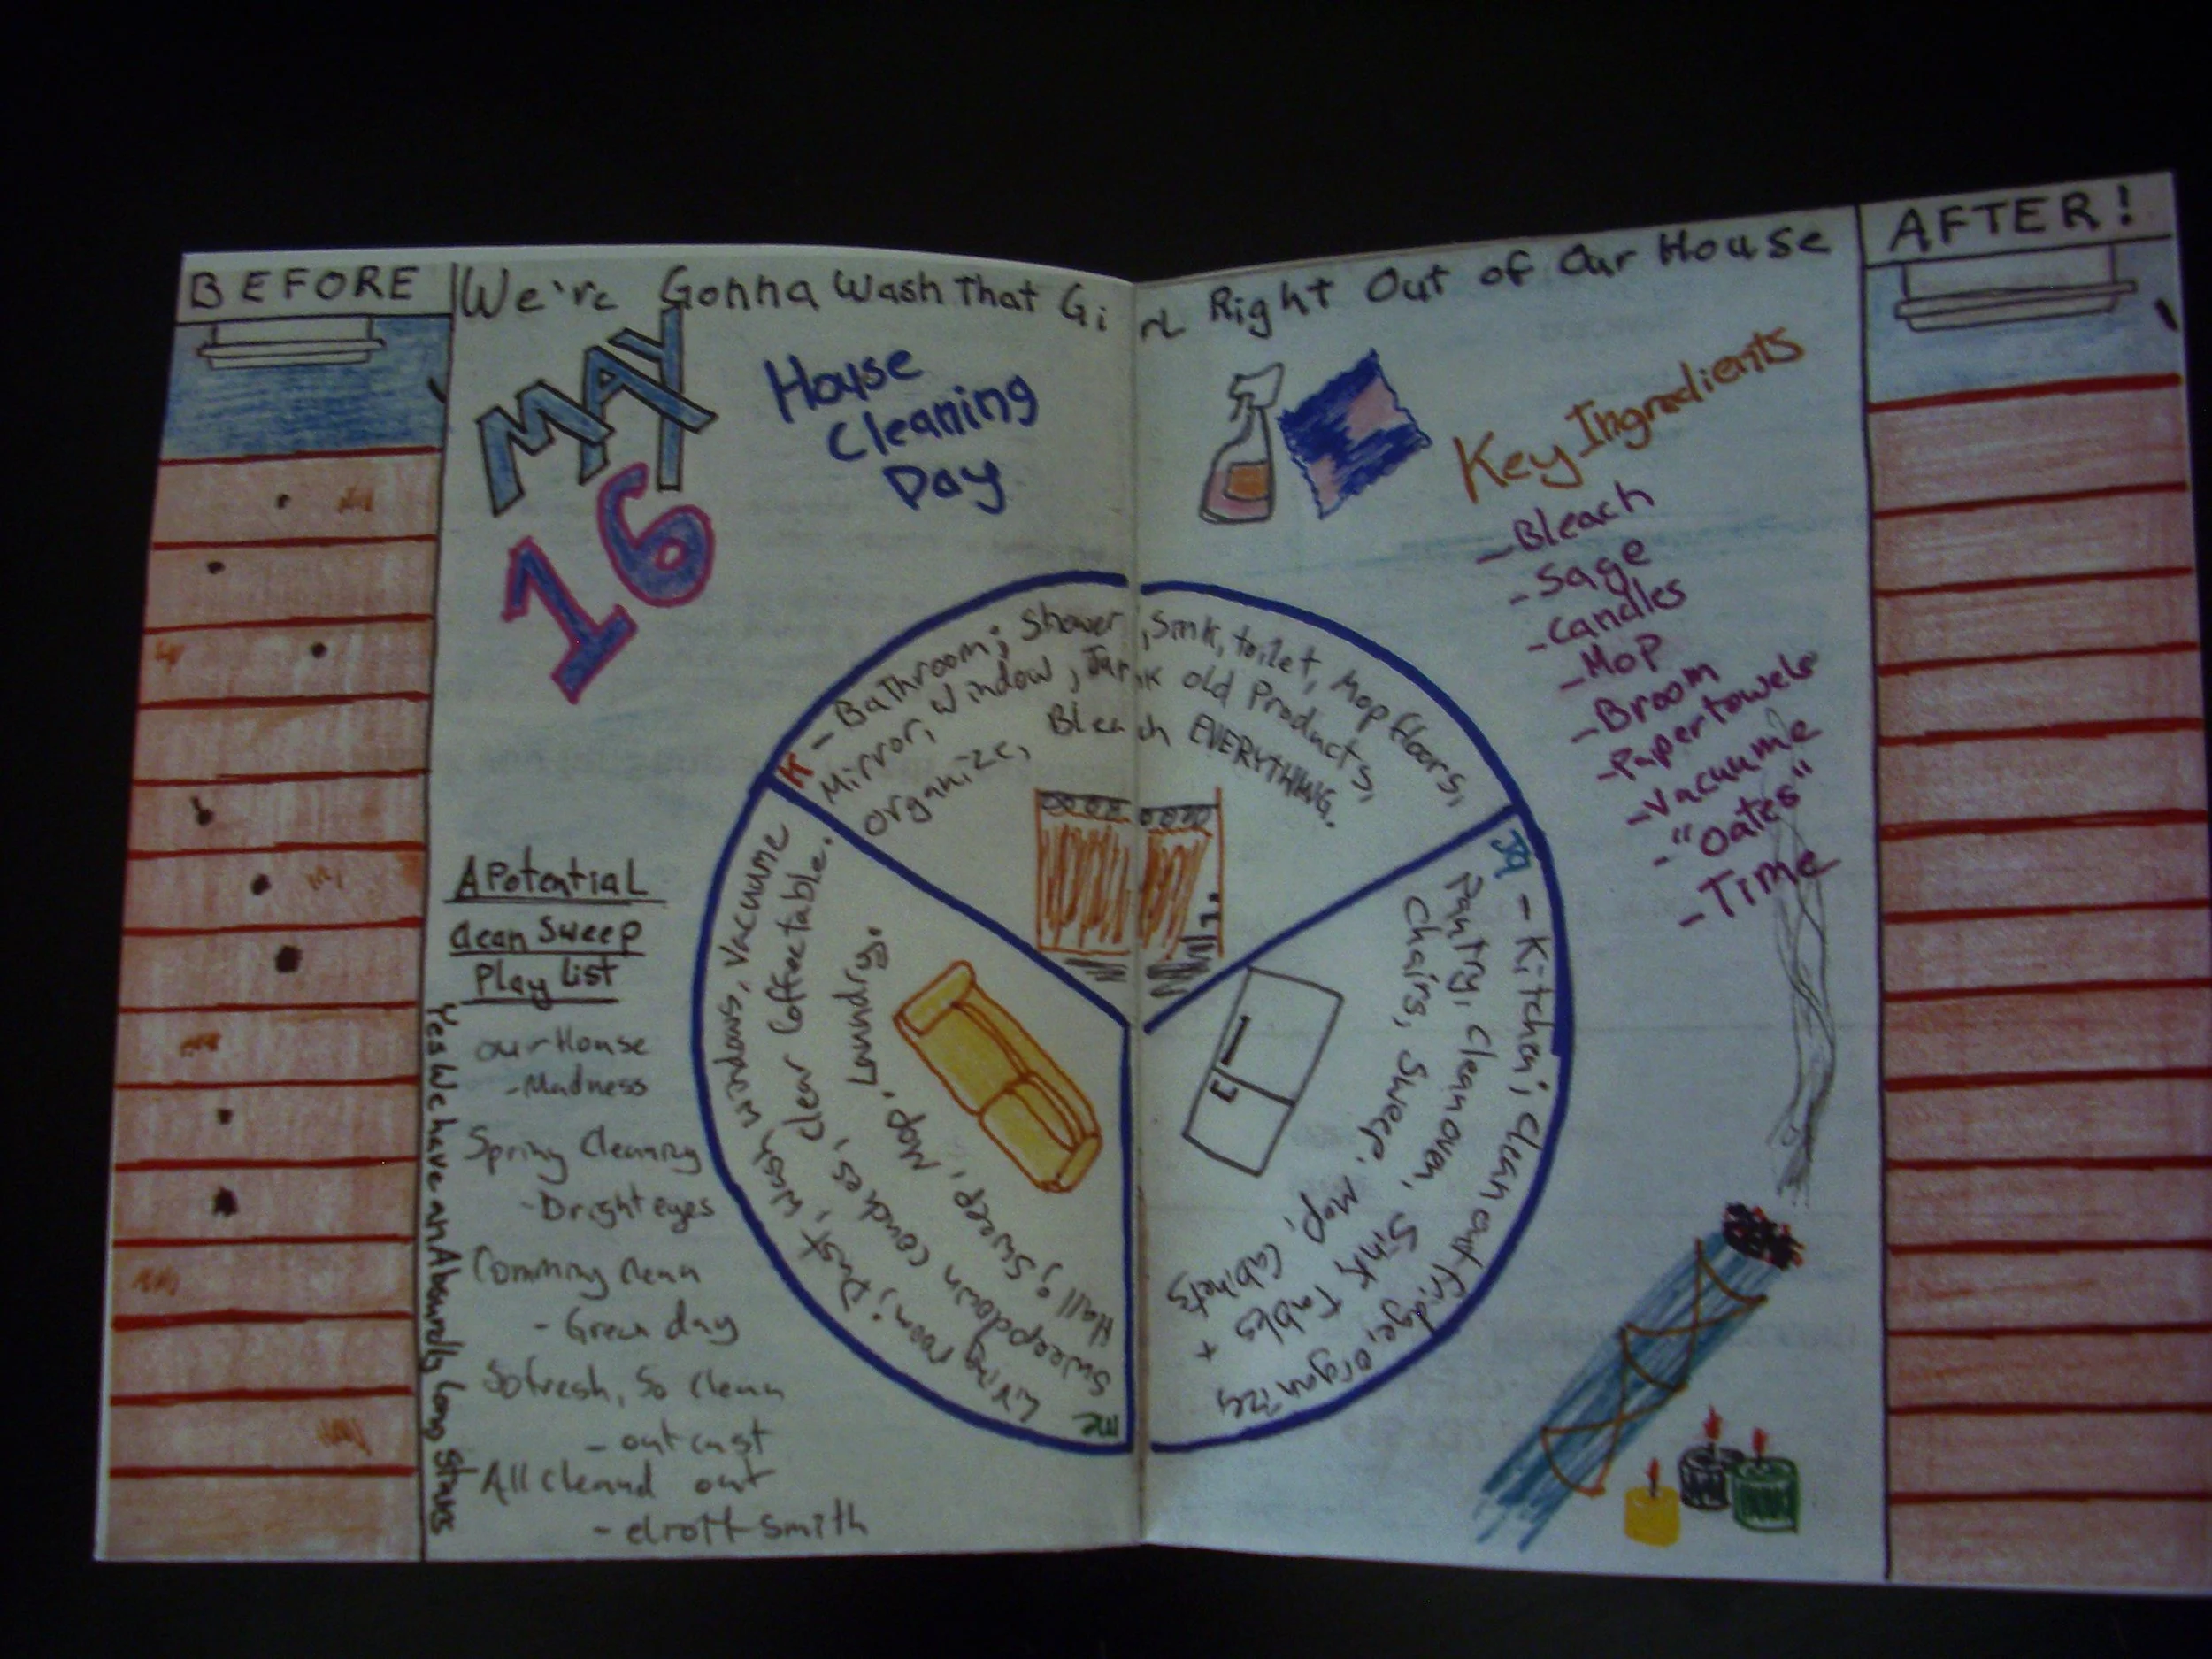 BEFORE
We're Gonna Wash That Girl Right Out of Our House
AFTER!
MAY
16
House
Cleaning
Day
Key Ingredients
- Bleach
- Sage
- Candles
- Mop
- Broom
- Papertowels
- Vacuume
- "Oates"
- Time
K - Bathroom; Shower, Sink, toilet, Mop floors,
Mirror, Window, Junk old Products,
organize, Bleach EVERYTHING.
- Kitchen; Clean out fridge, organize
Pantry, Clean oven, Sink Tables +
Chairs, Sweep, Mop, Cabinets
me
Living room; Dust, wash windows, Vacuume
Sweepdown couches, Clear Coffee table.
Hall; Sweep, Mop, Laundry.
A Potential
Clean Sweep
Play List
Our House
- Madness
Spring Cleaning
- Bright eyes
Comming Clean
- Green day
So fresh, So Clean
- outcast
All cleand out
- eliott Smith
Yes We have an Absurdly Long Stairs